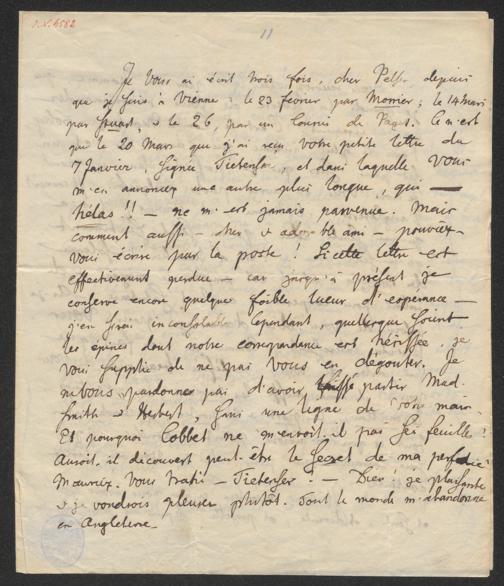 J.N. 4582
11
Je Vous ai écrit trois fois, cher Pelh. depuis
que je suis à Vienne: le 23 fevrier par Monnier; le 14 Mars
par Stuart, & le 26, par un Courier de Paget. Ce n'est
que le 20 Mars que j'ai reçu Votre petite lettre du
7 Janvier, signée et dans laquelle Vous
m'en annoncez une autre plus longue, qui —
hélas!! — ne m'est jamais parvenue. Mais
comment aussi — cher & adorable ami — pouviez-
Vous écrire par la poste! Si cette lettre est
effectivement perdue — car jusqu'à présent je
conserve encore quelque foible lueur d'esperance —
j'en serai inconsolable. Cependant, quelleque soient
les épines dont notre correspondance est hérissée, je
Vous supplie de ne pas Vous en dégouter. Je
ne Vous pardonne pas d'avoir partir Mad.
Smith & Herbert, sans une ligne de votre main.
Et pourquoi Cobbet ne m'envoit-il pas ses feuilles?
Auroit-il découvert peut-être le secret de ma perfidie
Vous trahi — — Dieu! je plaisante
& je voudrois pleurer plutôt. Tout le monde m'abandonne
en Angleterre.